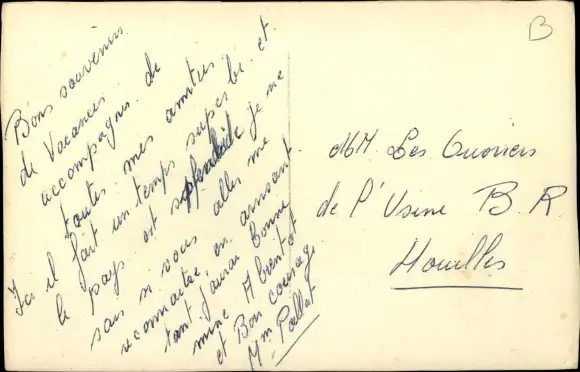 B
Bons souvenirs
de Vacances.
accompagnés de
toutes mes amitiés
Ici il fait un temps superbe et
le pays est splendide je ne
sais si vous alles me
reconnaitre, en arrivant
tant j'aurai bonne
mine A bientot
et Bon courage
Mm
MM. Les Ouvriers
de l'Usine B R
Houilles